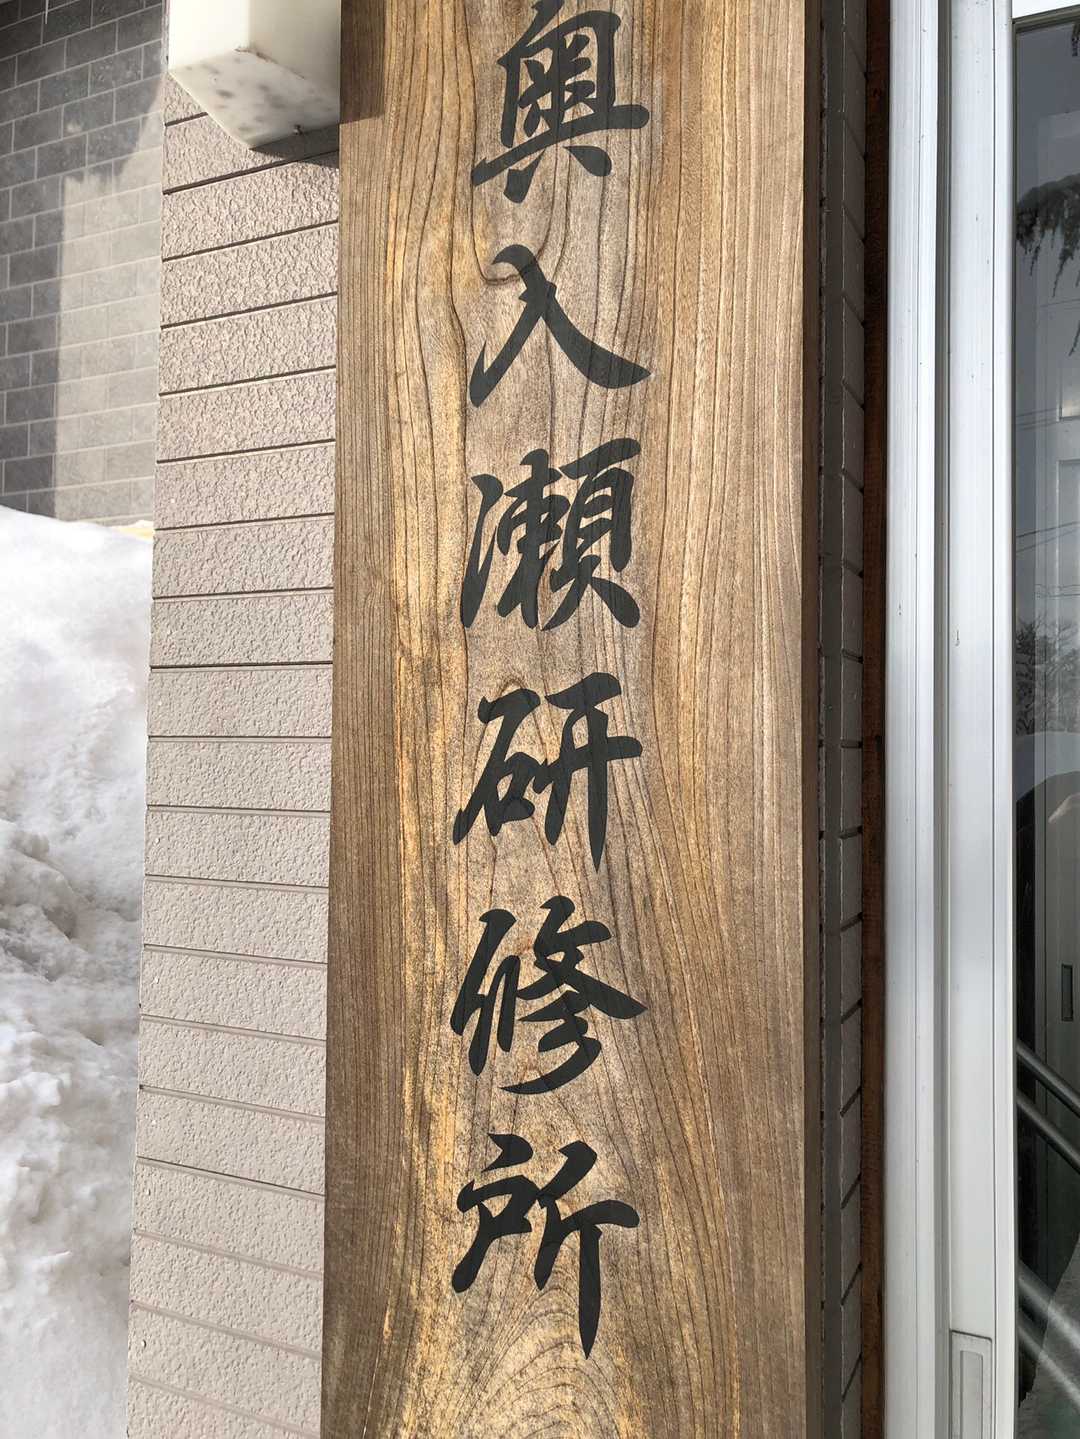 奥入瀬研修所